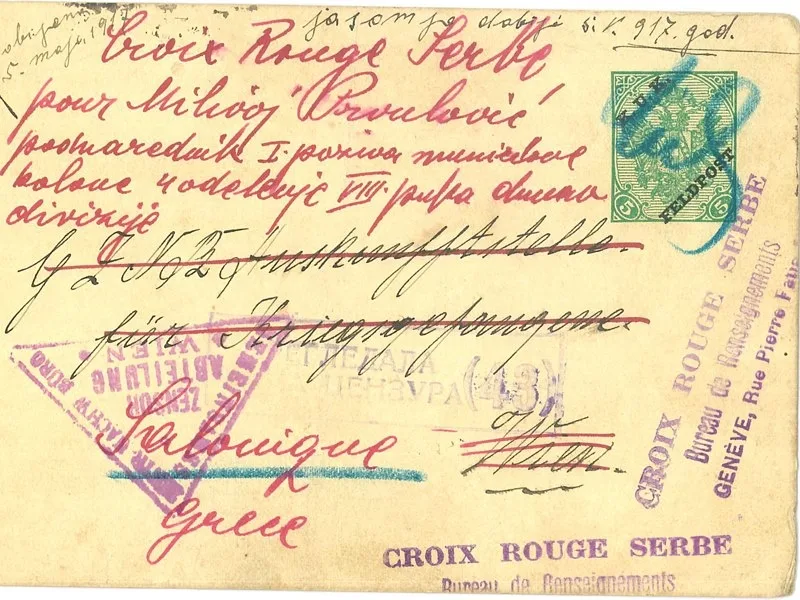 jasam je dobio 5. V. 917. god.
5. maja 1917
Croix Rouge Serbe
pour Milivoj
podnarednik I. poziva municione
kolone odelenje VIII. puka
divizije
K.u.K.
FELDPOST
5 5
G Z N B Auskunfftstelle
für Kriegsgefangene.
ПРЕГЛЕДАЛА
ЦЕНЗУРА (43)
ZENSUR
ABTEILUNG
WIEN
NACHW. BÜRO
Salonique
Wien.
Grece
CROIX ROUGE SERBE
Bureau de Renseignements
GENÈVE, Rue Pierre Fatio
CROIX ROUGE SERBE
Bureau de Renseignements